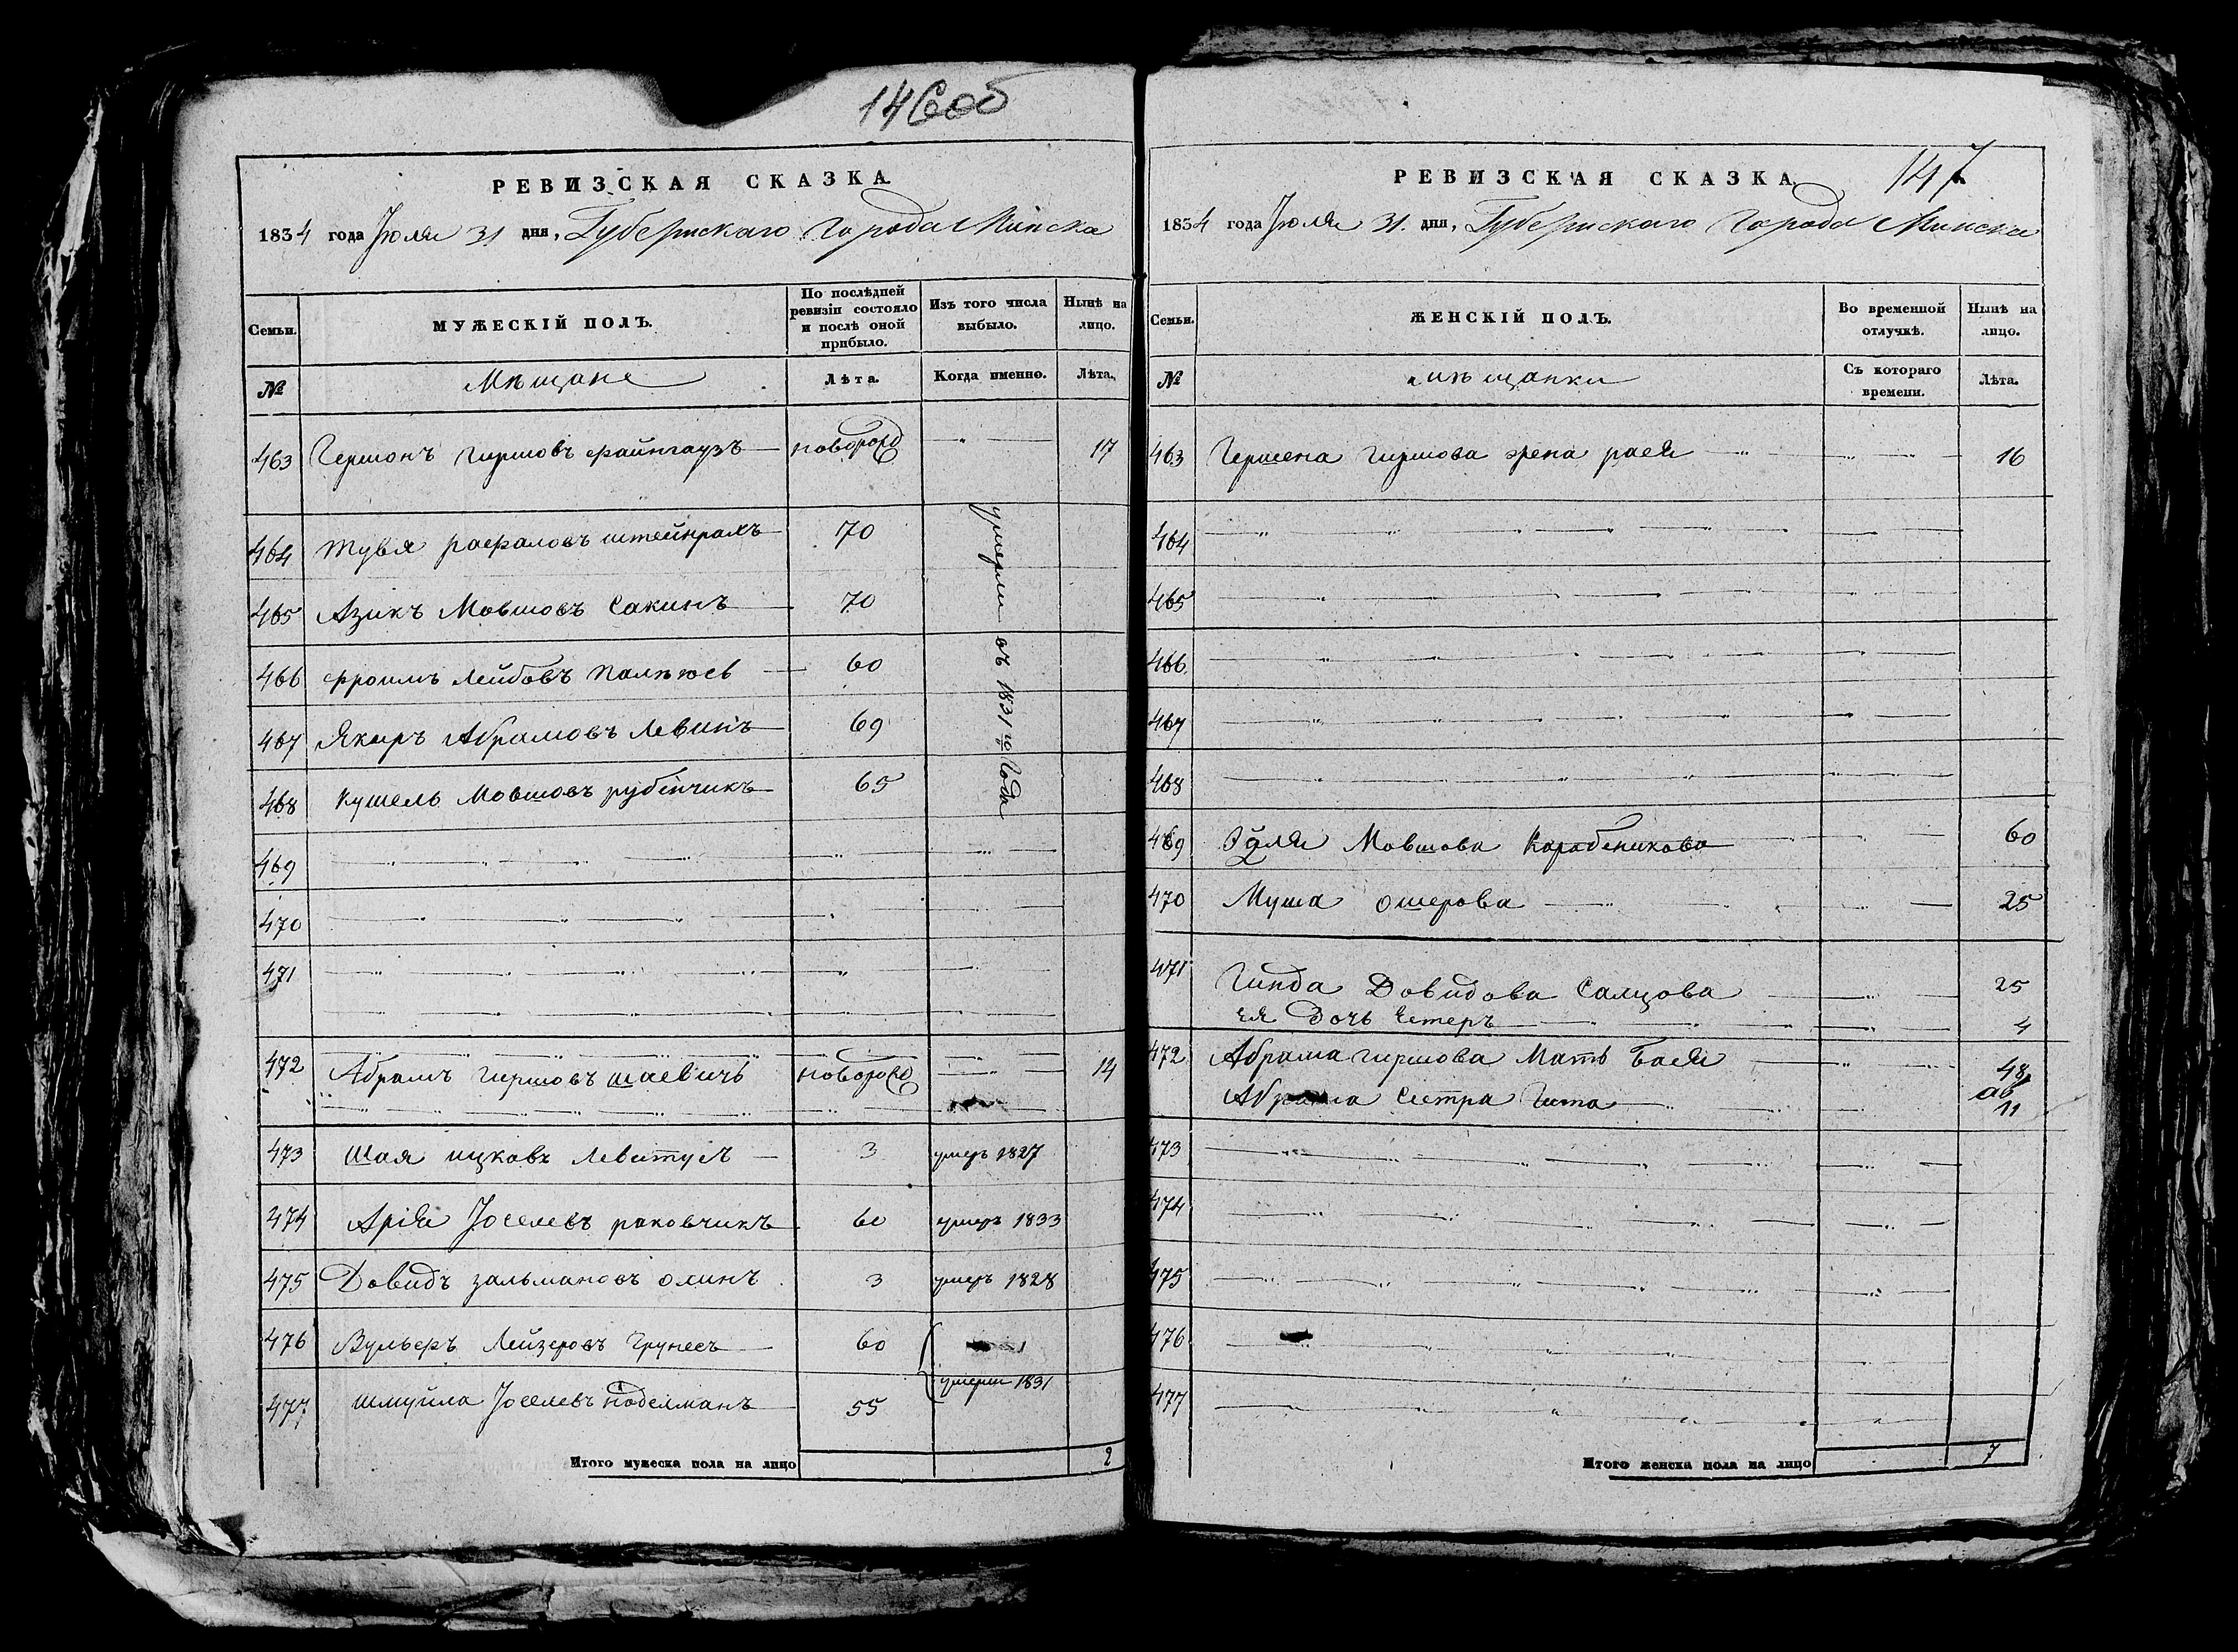 146об
РЕВИЗСКАЯ СКАЗКА
1834 года Июля 31 дня, Губернскаго Города Минска
Семьи.
МУЖЕСКІЙ ПОЛЪ.
По послѣдней ревизіи состояло и послѣ оной прибыло.
Изъ того числа выбыло.
Нынѣ на лицо.
№
Мѣщане
Лѣта.
Когда именно.
Лѣта.
463 Гершонъ Гиршовъ файнгаузъ новорожд 17
464 Тувя рафаловъ штейнрахъ 70
465 Азикъ Мовшовъ Сакинъ 70
466 фроимъ Лейбовъ 60
467 Якиръ Абрамовъ Левинъ 69
468 Кушель Мовшовъ рубенчикъ 65
умерли въ 1831го Года
469
470
471
472 Абрамъ Гиршовъ шаевичъ новорожд 14
473 Шая ицковъ 3 умеръ 1827
474 Арія Іоселевъ раковчикъ 60 умеръ 1833
475 Довидъ зальмановъ олинъ 3 умеръ 1828
476 Вульфъ Лейзеровъ Грунесъ 60
477 шмуйла Іоселевъ 55
умерли 1831
Итого мужеска пола на лицо 2
147
РЕВИЗСКАЯ СКАЗКА
1834 года Июля 31. дня, Губернскаго Города Минска
Семьи.
ЖЕНСКІЙ ПОЛЪ.
Во временной отлучкѣ.
Нынѣ на лицо.
№
мѣщанки
Съ котораго времени.
Лѣта.
463 Гершена Гиршова жена раея 16
464
465
466
467
468
469 Эдля Мовшова Карабеникова 60
470 Муша ошерова 25
471 Гинда Довидова Салцова 25
ея Дочь Естеръ 4
472 Абрама гиршова Мать Бася 48
Абрама Сестра Гита 11
473
474
475
476
477
Итого женска пола на лицо 7